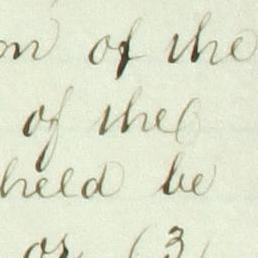 on of the
of the
held be
or (3)